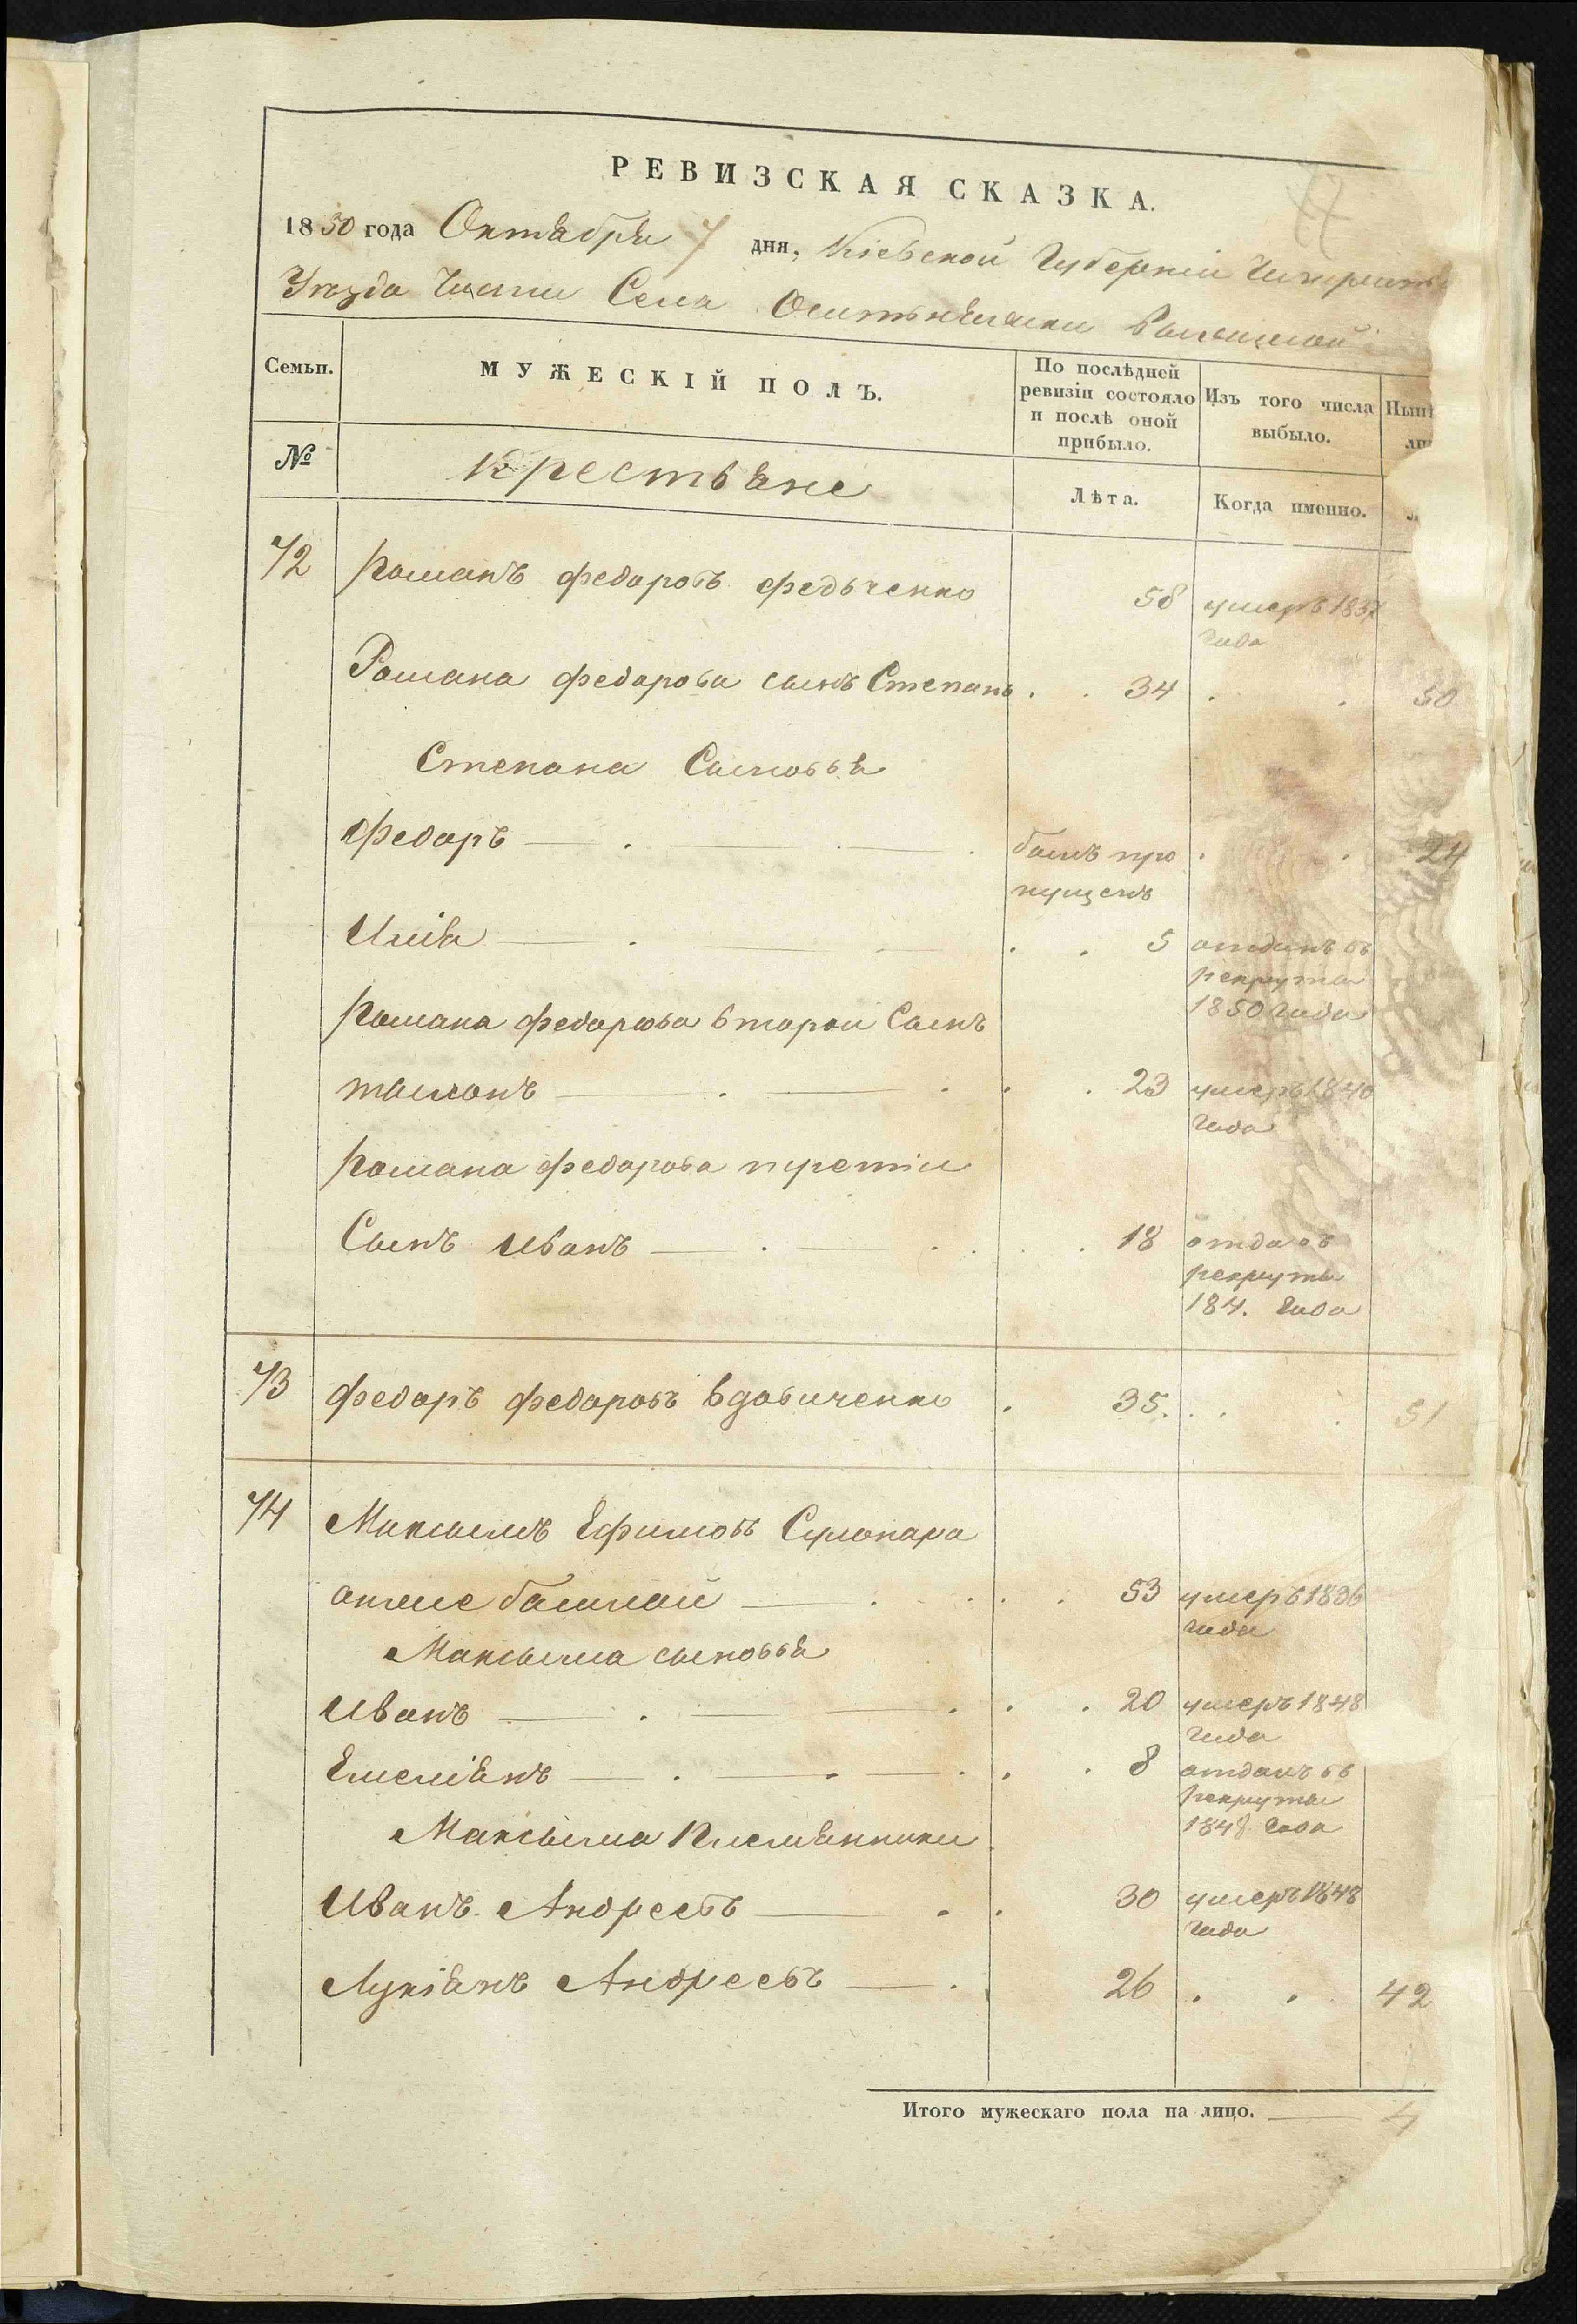 РЕВИЗСКАЯ СКАЗКА.
1850 года Октября 7 дня, Кіевской Губерніи
Уѣзда Части Села
Семьи.
МУЖЕСКІЙ ПОЛЪ.
По послѣдней
ревизіи состояло
и послѣ оной
прибыло.
Изъ того числа
выбыло.
Нынѣ
ли
№
Крестьяне
Лѣта.
Когда именно.
72
Романъ Федоровъ Федьченко 58 умеръ 1837
года
Романа Федорова сынъ Степанъ 34 50
Степана Сыновья
Федоръ былъ про 24
пущенъ
Илія 5 отданъ въ
рекруты
1850 года
Романа Федорова второй Сынъ
23 умеръ 1840
года
Романа Федорова третіи
Сынъ Иванъ 18
рекруты
184. года
73 Федоръ Федоровъ Вдовиченко 35. 51
74 Максымъ Ефимовъ
53 умеръ 1836
года
Максыма сыновья
Иванъ 20 умеръ 1848
года
Емеліянъ 8 отданъ въ
рекруты
1848 года
Максыма Племянники
Иванъ Андреевъ 30 умеръ 1848
года
Лукіянъ Андреевъ 26 42
Итого мужескаго пола на лицо. 4